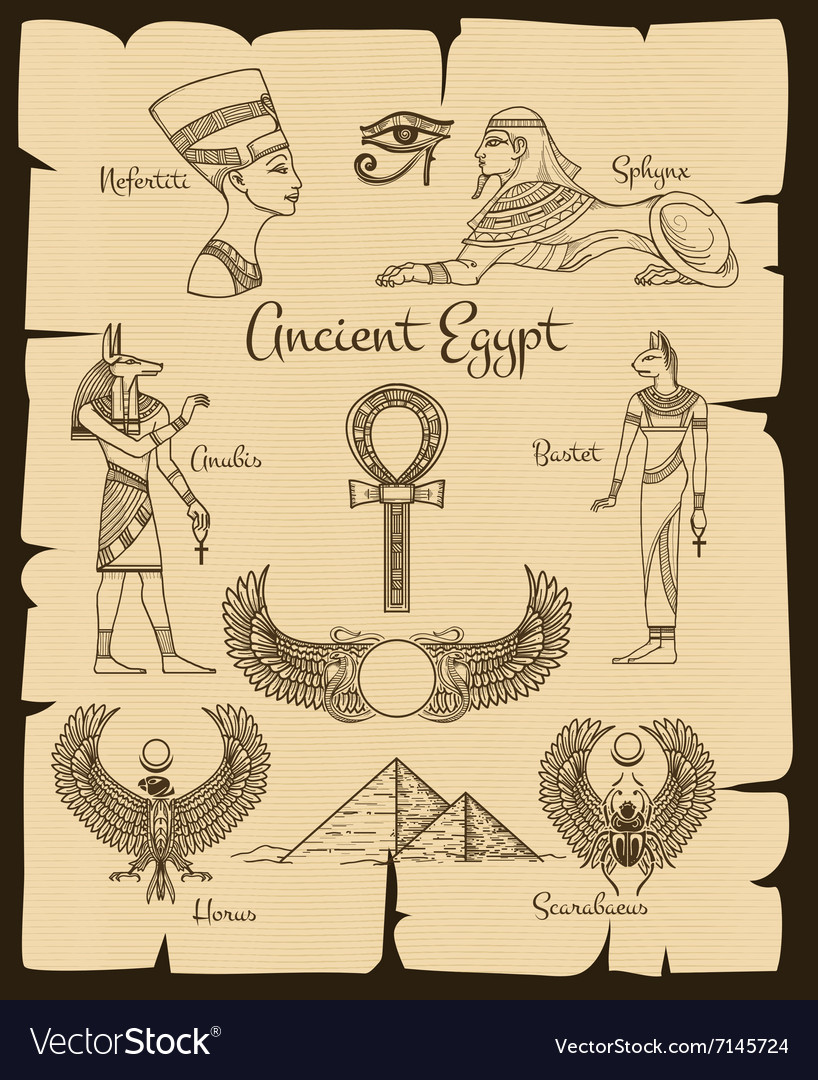 Nefertiti
Sphynx
Ancient Egypt
Anubis
Bastet
Horus
Scarabaeus
VectorStock®
VectorStock.com/7145724